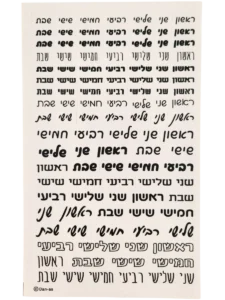 ראשון שני שלישי רביעי חמישי שישי שבת
ראשון שני שלישי רביעי חמישי שישי שבת
ראשון שני שלישי רביעי חמישי שישי שבת
ראשון שני שלישי רביעי חמישי שישי שבת
ראשון שני שלישי רביעי חמישי שישי שבת
ראשון שני שלישי רביעי חמישי שישי שבת
ראשון שני שלישי רביעי חמישי שישי שבת
ראשון שני שלישי רביעי חמישי שישי שבת
ראשון שני שלישי רביעי חמישי
שישי שבת ראשון שני שלישי
רביעי חמישי שישי שבת ראשון
שני שלישי רביעי חמישי שישי
שבת ראשון שני שלישי רביעי
חמישי שישי שבת ראשון שני
שלישי רביעי חמישי שישי שבת
ראשון שני שלישי רביעי
חמישי שישי שבת ראשון
שני שלישי רביעי חמישי שישי שבת